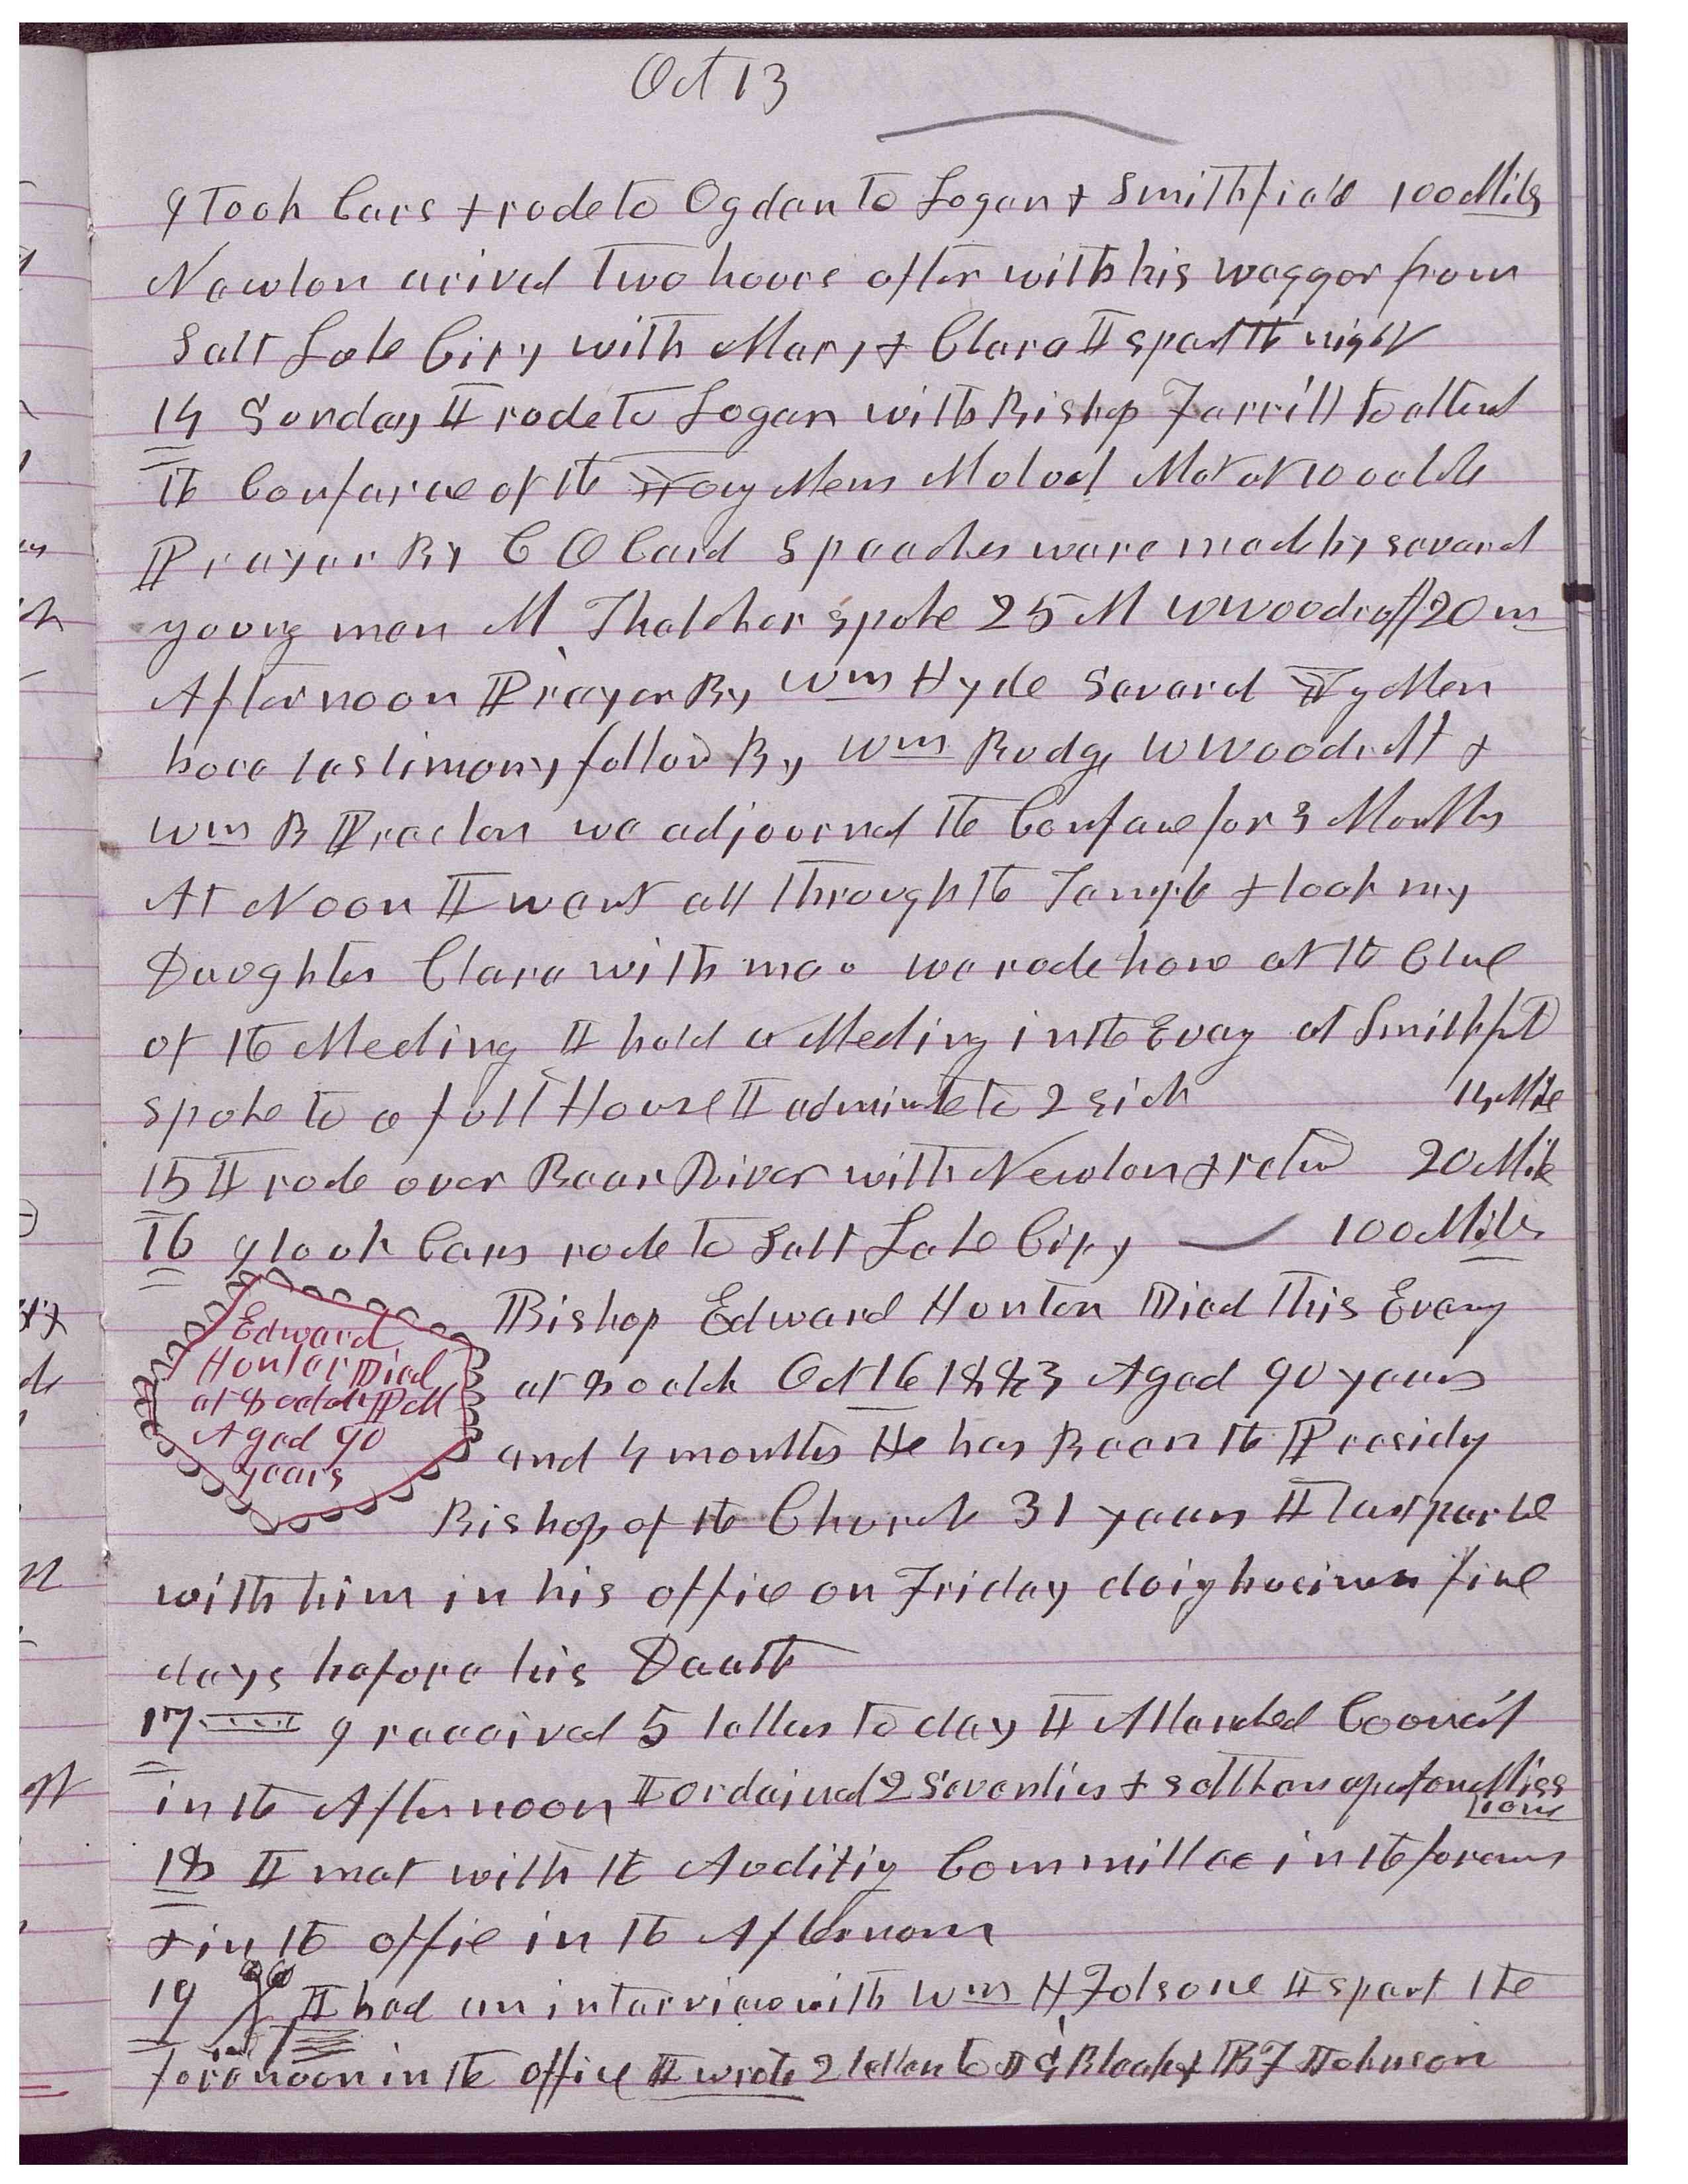 Oct 13
I Took Cars & rode to Ogden to Logan & Smithfield 100 Miles
Newton arived two hours after with his waggon from
Salt Lake City with Mary & Clara I spent the night
14 Sunday I rode to Logan with Bishop Farrill to attend
the Conference of the Yg Mens Mutual Met at 10 oclok
Prayer By C O Card Speeches ware made by several
young men M Thatcher spoke 25 M W Woodruff 20 m
Afternoon Prayer By Wm Hyde Several Yg Men
bore testimony follow By Wm Budge W Woodruff &
Wm B Preston we adjourned the Confere for 3 Months
At Noon I went all through the Temple & took my
Daughter Clara with me. we rode home at the Close
of the Meeting I held a Meeting in the Eveng at Smithfd
spoke to a full House I administe to 2 sick 14 Mile
15 I rode over Bear River with Newton & retur 20 Mile
16 I took Cars rode to Salt Lake City 100 Miles
Bishop Edward Hunter Died This Eveng
at 8 oclok Oct 16 1883 Aged 90 years
and 4 months He has Been the Presidg
Bishop of the Church 31 years I last parted
with him in his office on Friday doig buisness five
days before his Death
Edward
Hunter Died
at 8 oclok P M
Aged 90
years
17 I received 5 letters to day I Attended Council
in the Afternoon I ordained 2 Seventies & set them apart on Miss
ions
18 I met with the Auditig Committee in the forenoon
& in the offie in the Afternoon
19 I had an interview with Wm H Folsome I spent the
forenoon in the office I wrote 2 letters to Black & B F Johnson